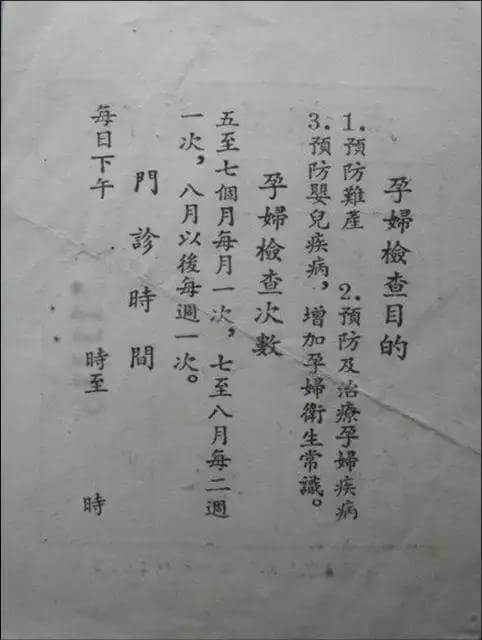 孕婦檢查目的
1.預防難產　2.預防及治療孕婦疾病
3.預防嬰兒疾病，增加孕婦衛生常識。
孕婦檢查次數
五至七個月每月一次，七至八月每二週
一次，八月以後每週一次。
門診時間
每日下午　時至　時